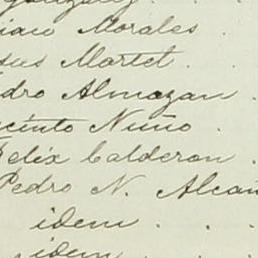 Gonzalez
Morales .
Martel .
dro Almazan .
acinto Nuño .
Felix Calderon .
Pedro N. Alcan
idem . . .
idem . . .